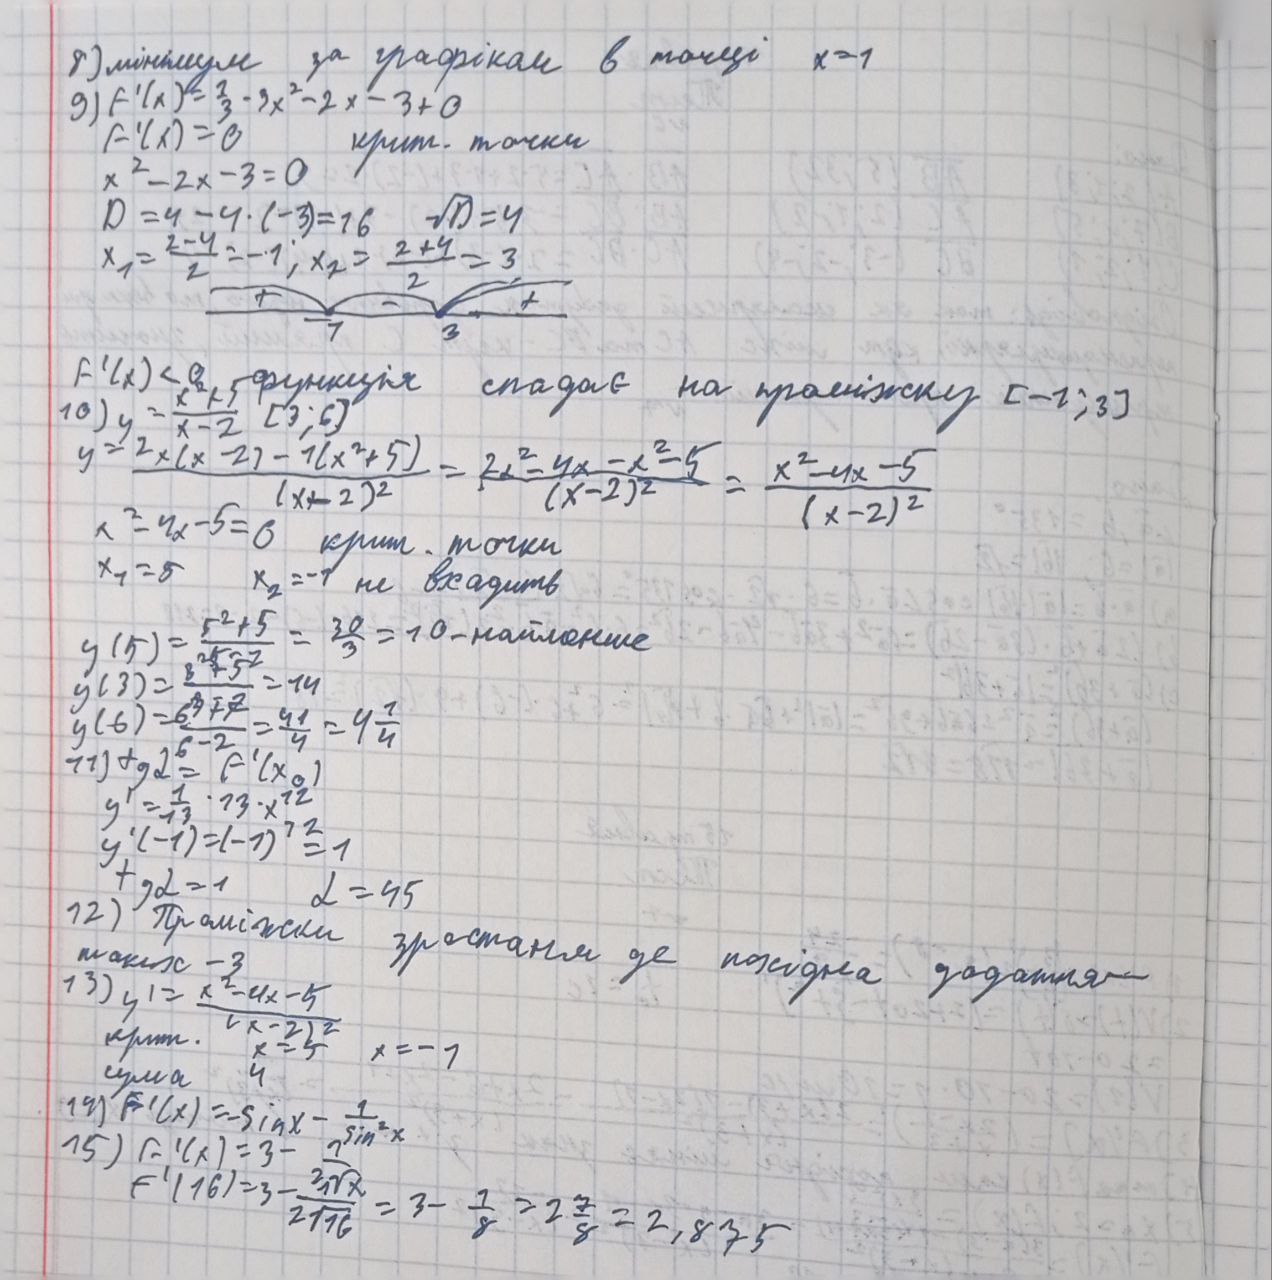 8) мінімум за графікам в точці x=1
9) F'(x)=1/3·3x²-2x-3+0
F'(x)=0 крит. точки
x²-2x-3=0
D=4-4·(-3)=16 √D=4
x₁=(2-4)/2=-1; x₂=(2+4)/2=3
+ - +
-1 3
F'(x)<0 функція спадає на проміжку [-1;3]
10) y=(x²+5)/(x-2) [3;6]
y=(2x(x-2)-1(x²+5))/(x-2)²=(2x²-4x-x²-5)/(x-2)²=(x²-4x-5)/(x-2)²
x²-4x-5=0 крит. точки
x₁=5 x₂=-1 не входить
y(5)=(5²+5)/(5-2)=30/3=10-найменше
y(3)=(3²+5)/=14
y(6)=/(6-2)=41/4=4 1/4
11) tgα=F'(x₀)
y'=1/13·13·x¹²
y'(-1)=(-1)¹²=1
tgα=1 α=45
12) Проміжки зростання де похідна додатня
таких -3
13) y'=(x²-4x-5)/(x-2)²
крит. x=5 x=-1
сума 4
14) F'(x)=-sinx-1/sin²x
15) F'(x)=3-1/2√x
F'(16)=3-1/2√16=3-1/8=2 7/8=2,875